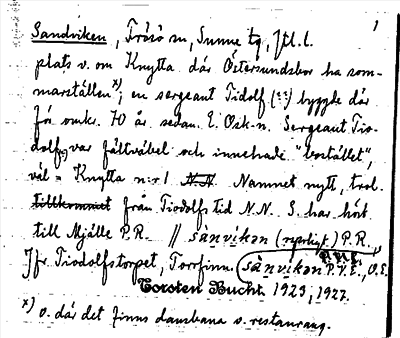 1
Sandviken, Frösö sn, Sunne tg, Jtl. l.
plats v. om Knytta där Östersundsbor ha som-
marställen x); en sergeant Tidolf (::) byggde där
för omkr. 70 år sedan E. Osk-n. Sergeant Tio-
dolf, var fältväbel och innehade "bostället",
väl = Knytta n:r 1 N.N. Namnet nytt, trol.
tillkommet från Tiodolfs tid N.N. S. har hört
till Mjälle P.R. // sànvikən (nyligt) P.R.,
Jfr Tiodolfstorpet, Torfinn. sànvikən P.V.E., O.E.
Torsten Bucht. 1925, 1927.
x) o. där det finns dansbana o. restaurang.